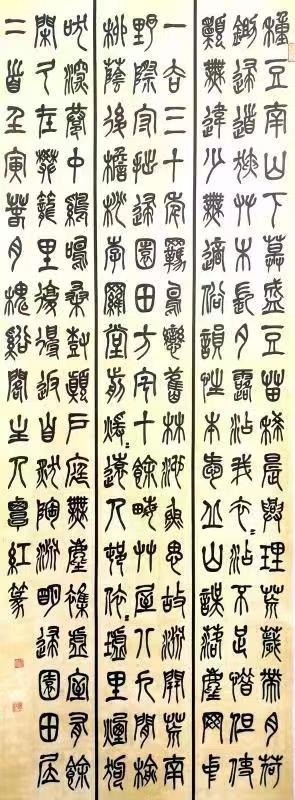 種豆南山下草盛豆苗稀晨興理荒薉帶月荷
鋤歸道狹艸木長夕露沾我衣〻沾不足惜但使
願無違少無適俗韻性本愛丘山誤落塵网中
一去三十年羈鳥戀舊林池魚思故淵開荒南
野際守拙歸園田方宅十餘畝艸屋八九間榆
柳蔭後檐桃李羅堂前曖〻遠人村依〻墟里煙狗
吠深巷中雞鳴桑樹顛戶庭無塵雜虛室有餘
閑久在樊籠里復得返自然陶淵明歸園田居
二首壬寅春月槐谿閣主人紅篆